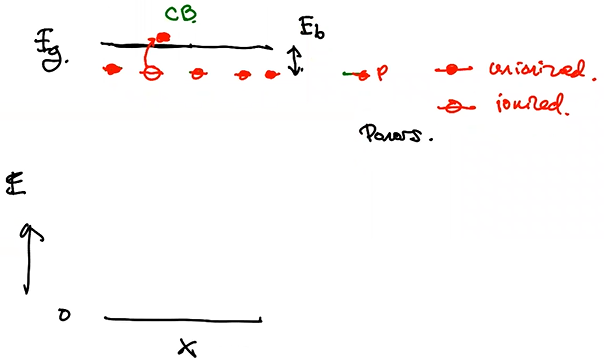 CB.
Eg.
Eb
P
unionized.
ionized.
Donors.
E
0
x